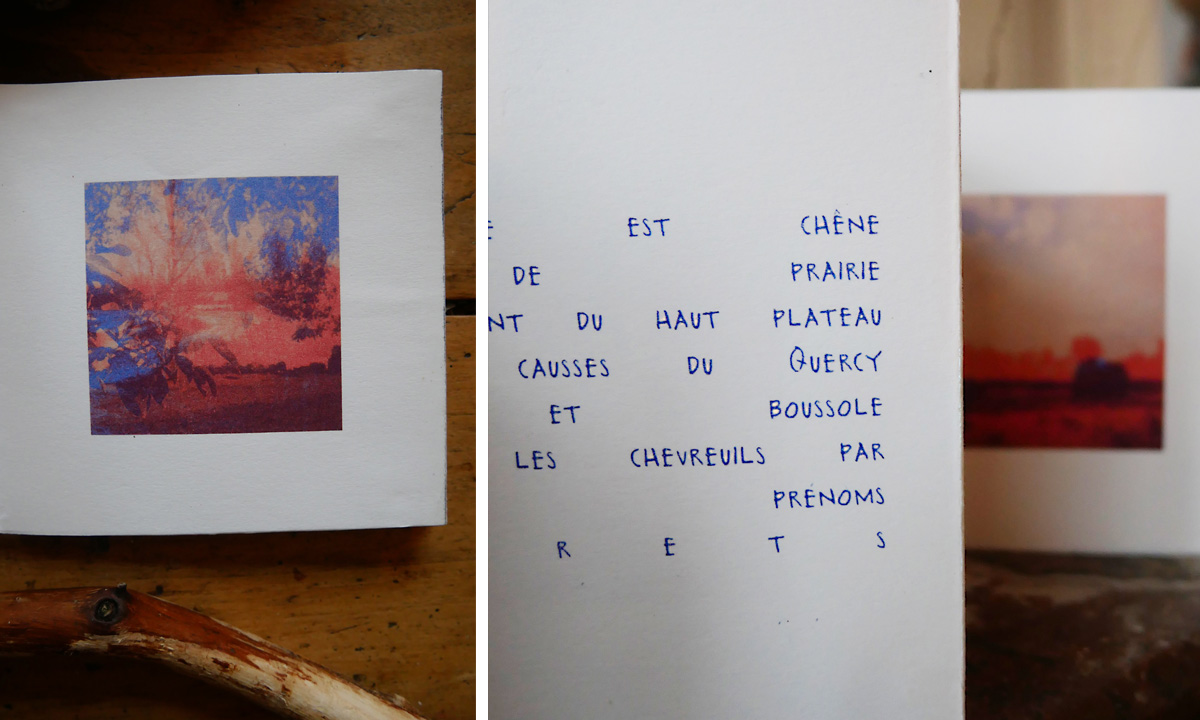 EST CHÊNE
DE PRAIRIE
NT DU HAUT PLATEAU
CAUSSES DU QUERCY
ET BOUSSOLE
LES CHEVREUILS PAR
PRÉNOMS
R E T S